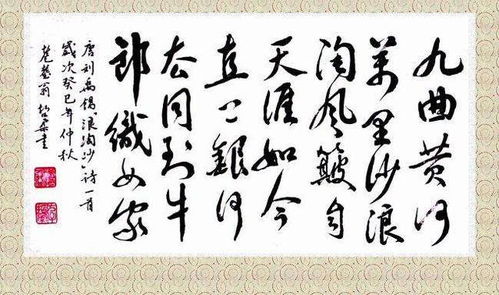 九曲黄河
萬里沙浪
淘风簸自
天涯如今
直上銀河
去同到牛
郎織女家
唐刘禹锡《浪淘沙》诗一首
歲次癸巳年仲秋
耄耋翁